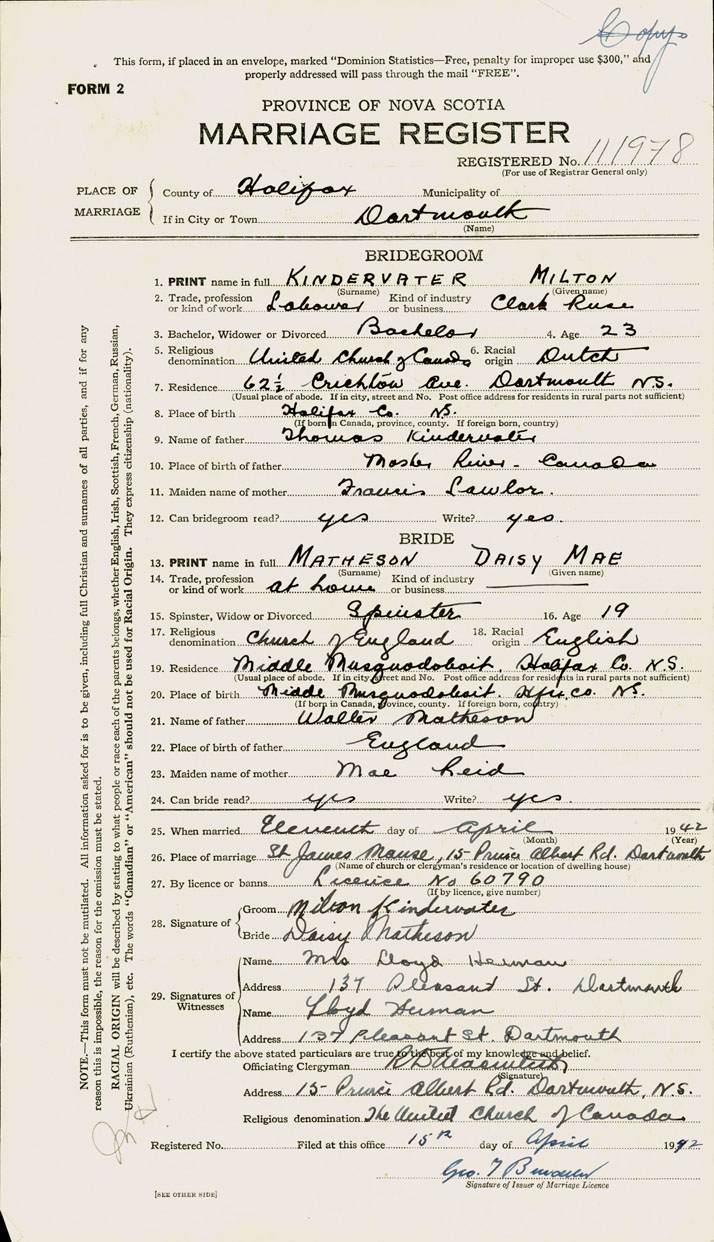 Copy
This form, if placed in an envelope, marked "Dominion Statistics—Free, penalty for improper use $300," and
properly addressed will pass through the mail "FREE".
FORM 2
PROVINCE OF NOVA SCOTIA
MARRIAGE REGISTER
REGISTERED No. 111978
(For use of Registrar General only)
PLACE OF MARRIAGE
County of Halifax Municipality of
If in City or Town Dartmouth
(Name)
BRIDEGROOM
1. PRINT name in full KINDERVATER MILTON
(Surname) (Given name)
2. Trade, profession or kind of work Labourer Kind of industry or business Clark Ruse
3. Bachelor, Widower or Divorced Bachelor 4. Age 23
5. Religious denomination United Church of Canada 6. Racial origin Dutch
7. Residence 62½ Crichton Ave. Dartmouth N.S.
(Usual place of abode. If in city, street and No. Post office address for residents in rural parts not sufficient)
8. Place of birth Halifax Co. N.S.
(If born in Canada, province, county. If foreign born, country)
9. Name of father Thomas Kindervater
10. Place of birth of father Mosher River - Canada
11. Maiden name of mother Francis Lawlor.
12. Can bridegroom read? yes Write? yes.
BRIDE
13. PRINT name in full MATHESON DAISY MAE
(Surname) (Given name)
14. Trade, profession or kind of work at home Kind of industry or business
15. Spinster, Widow or Divorced Spinster 16. Age 19
17. Religious denomination Church of England 18. Racial origin English
19. Residence Middle Musquodoboit. Halifax Co. N.S.
(Usual place of abode. If in city, street and No. Post office address for residents in rural parts not sufficient)
20. Place of birth Midde Musquodoboit. Hfx. co. N.S.
(If born in Canada, province, county. If foreign born, country)
21. Name of father Walter Matheson
22. Place of birth of father England
23. Maiden name of mother Mae Reid
24. Can bride read? yes Write? yes.
25. When married Eleventh day of April 1942
(Month) (Year)
26. Place of marriage St James Manse, 15 Prince Albert Rd. Dartmouth
(Name of church or clergyman's residence or location of dwelling house)
27. By licence or banns Licence No 60790
(If by licence, give number)
28. Signature of
Groom Milton Kindervater
Bride Daisy Matheson
29. Signatures of Witnesses
Name Mrs Lloyd Herman
Address 137 Pleasant St. Dartmouth
Name Lloyd Herman
Address 137 Pleasant St. Dartmouth
I certify the above stated particulars are true to the best of my knowledge and belief.
Officiating Clergyman
(Signature)
Address 15 Prince Albert Rd. Dartmouth, N.S.
Religious denomination The United Church of Canada
Registered No. Filed at this office 15th day of April 1942
Geo. T
Signature of Issuer of Marriage Licence
[SEE OTHER SIDE]
NOTE.—This form must not be mutilated. All information asked for is to be given, including full Christian and surnames of all parties, and if for any
reason this is impossible, the reason for the omission must be stated.
RACIAL ORIGIN will be described by stating to what people or race each of the parents belongs, whether English, Irish, Scottish, French, German, Russian,
Ukrainian (Ruthenian), etc. The words "Canadian" or "American" should not be used for Racial Origin. They express citizenship (nationality).